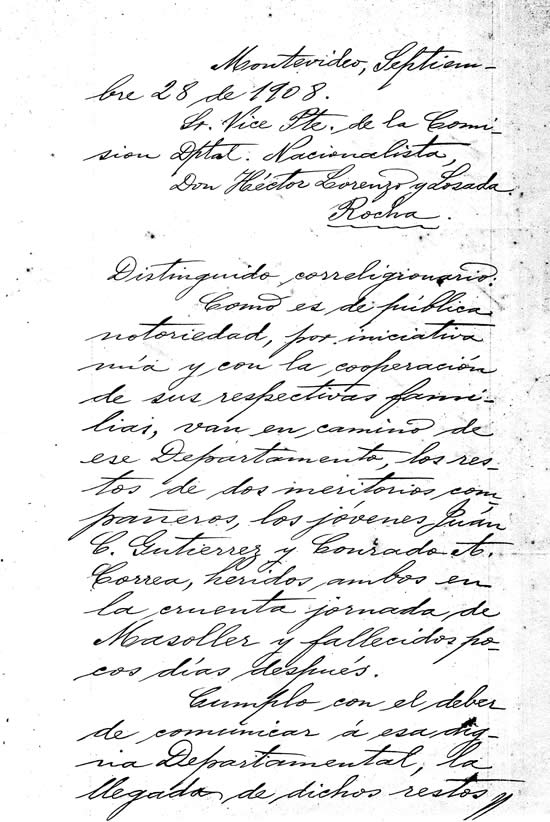 Montevideo, Septiem-
bre 28 de 1908.
Sr. Vice Pte. de la Comi-
sion Dptal. Nacionalista,
Don Héctor Lorenzo y Losada.
Rocha.
Distinguido correligionario:
Como es de pública
notoriedad, por iniciativa
mía y con la cooperación
de sus respectivas fami-
lias, van en camino de
ese Departamento, los res-
tos de dos meritorios com-
pañeros, los jóvenes Juán
C. Gutierrez y Conrado A.
Correa, heridos ambos en
la cruenta jornada de
Masoller y fallecidos po-
cos días después.
Cumplo con el deber
de comunicar á esa dig-
na Departamental, la
llegada de dichos restos